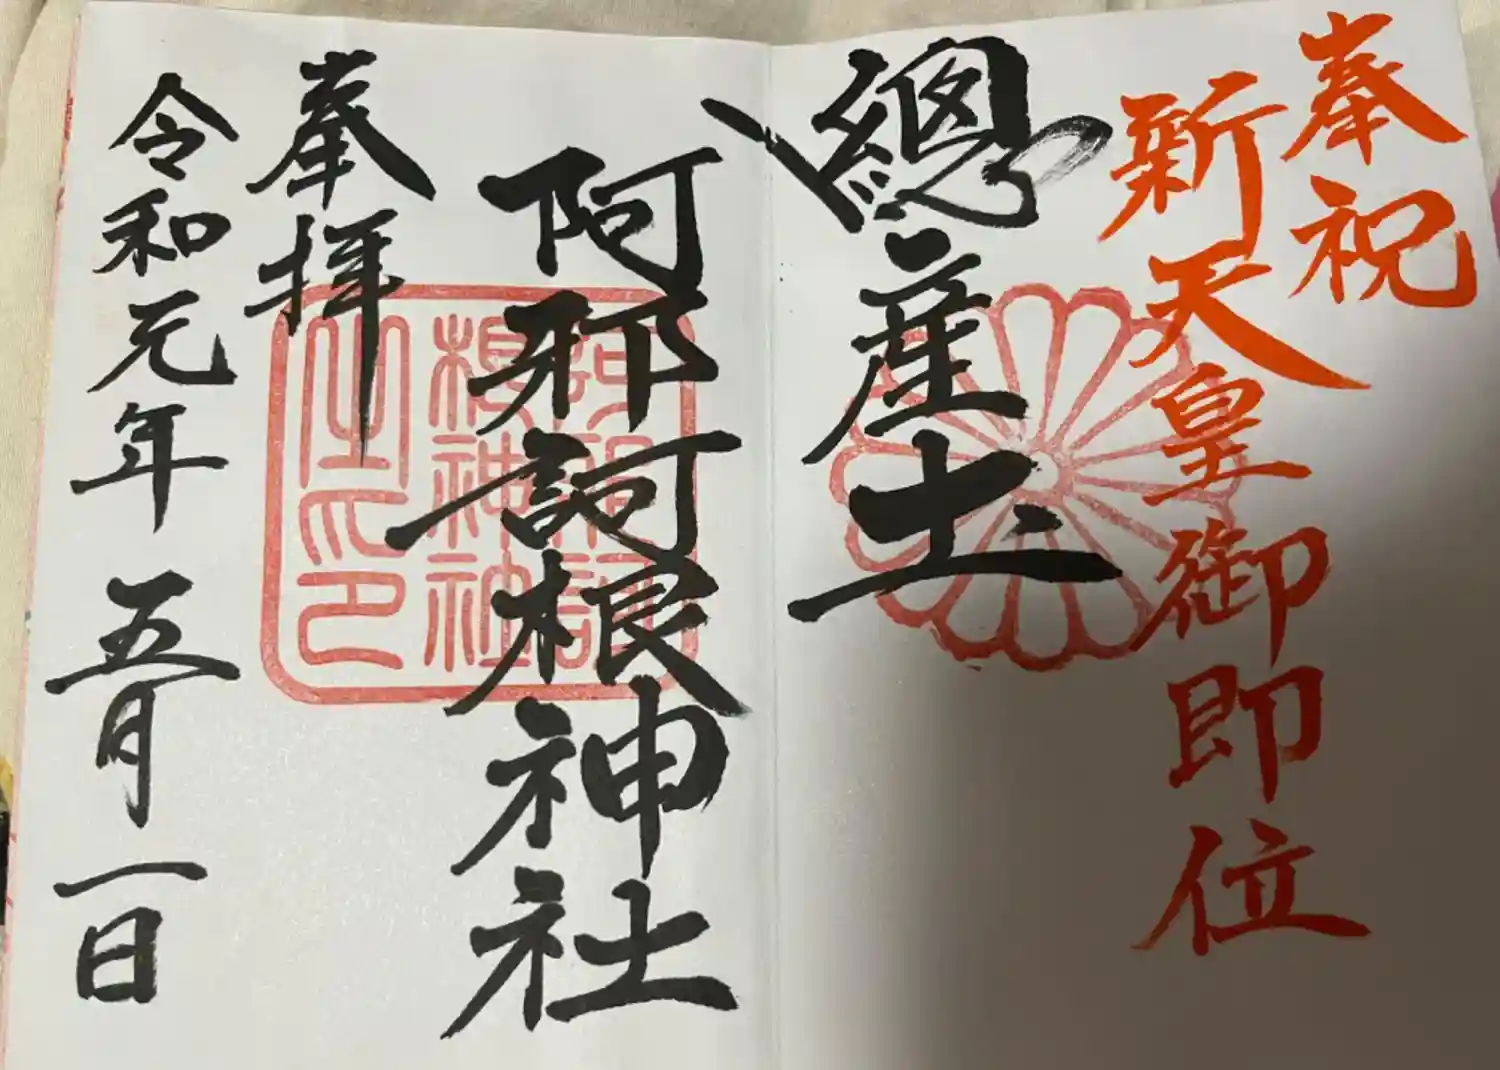 奉祝
新天皇御即位
總産圡
阿邪訶根神社
奉拝
令和元年五月一日
阿邪訶
根神社
之印